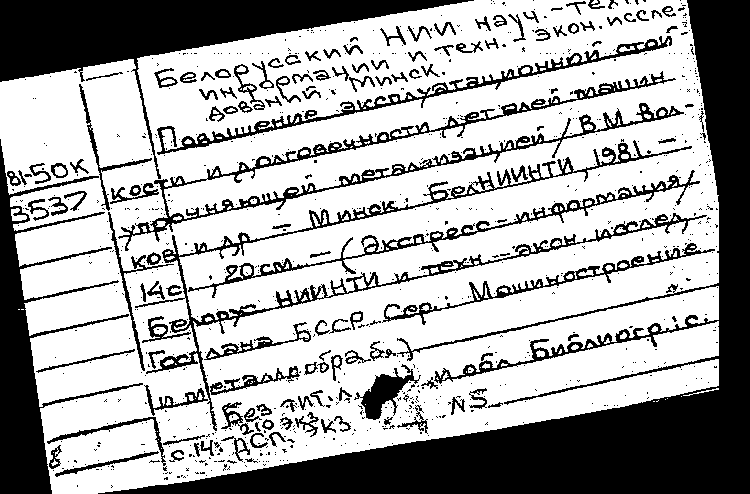 Белорусский НИИ науч.-техн.
информации и техн.-экон. иссле-
дований. Минск.
Повышение эксплуатационной стой
81-50К
кости и долговечности деталей машин
3537
упрочняющей метализацией / В.М. Вол-
ков и др — Минск: БелНИИНТИ, 1981. —
14с. ; 20см. — (Экспресс-информация /
Белорус НИИНТИ и техн-экон. исслед,
Госплана БССР Сер.: Машиностроение
и металлобраб.)
Без тит. л. и обл Библиогр.: с.
с.14. ДСП. 210 экз экз NS
8.